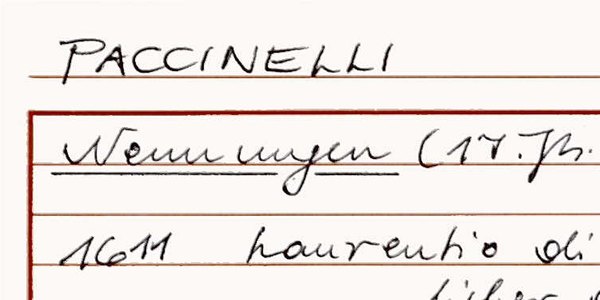 PACCINELLI
Nennungen (17. Jh.
1611 Laurentio di